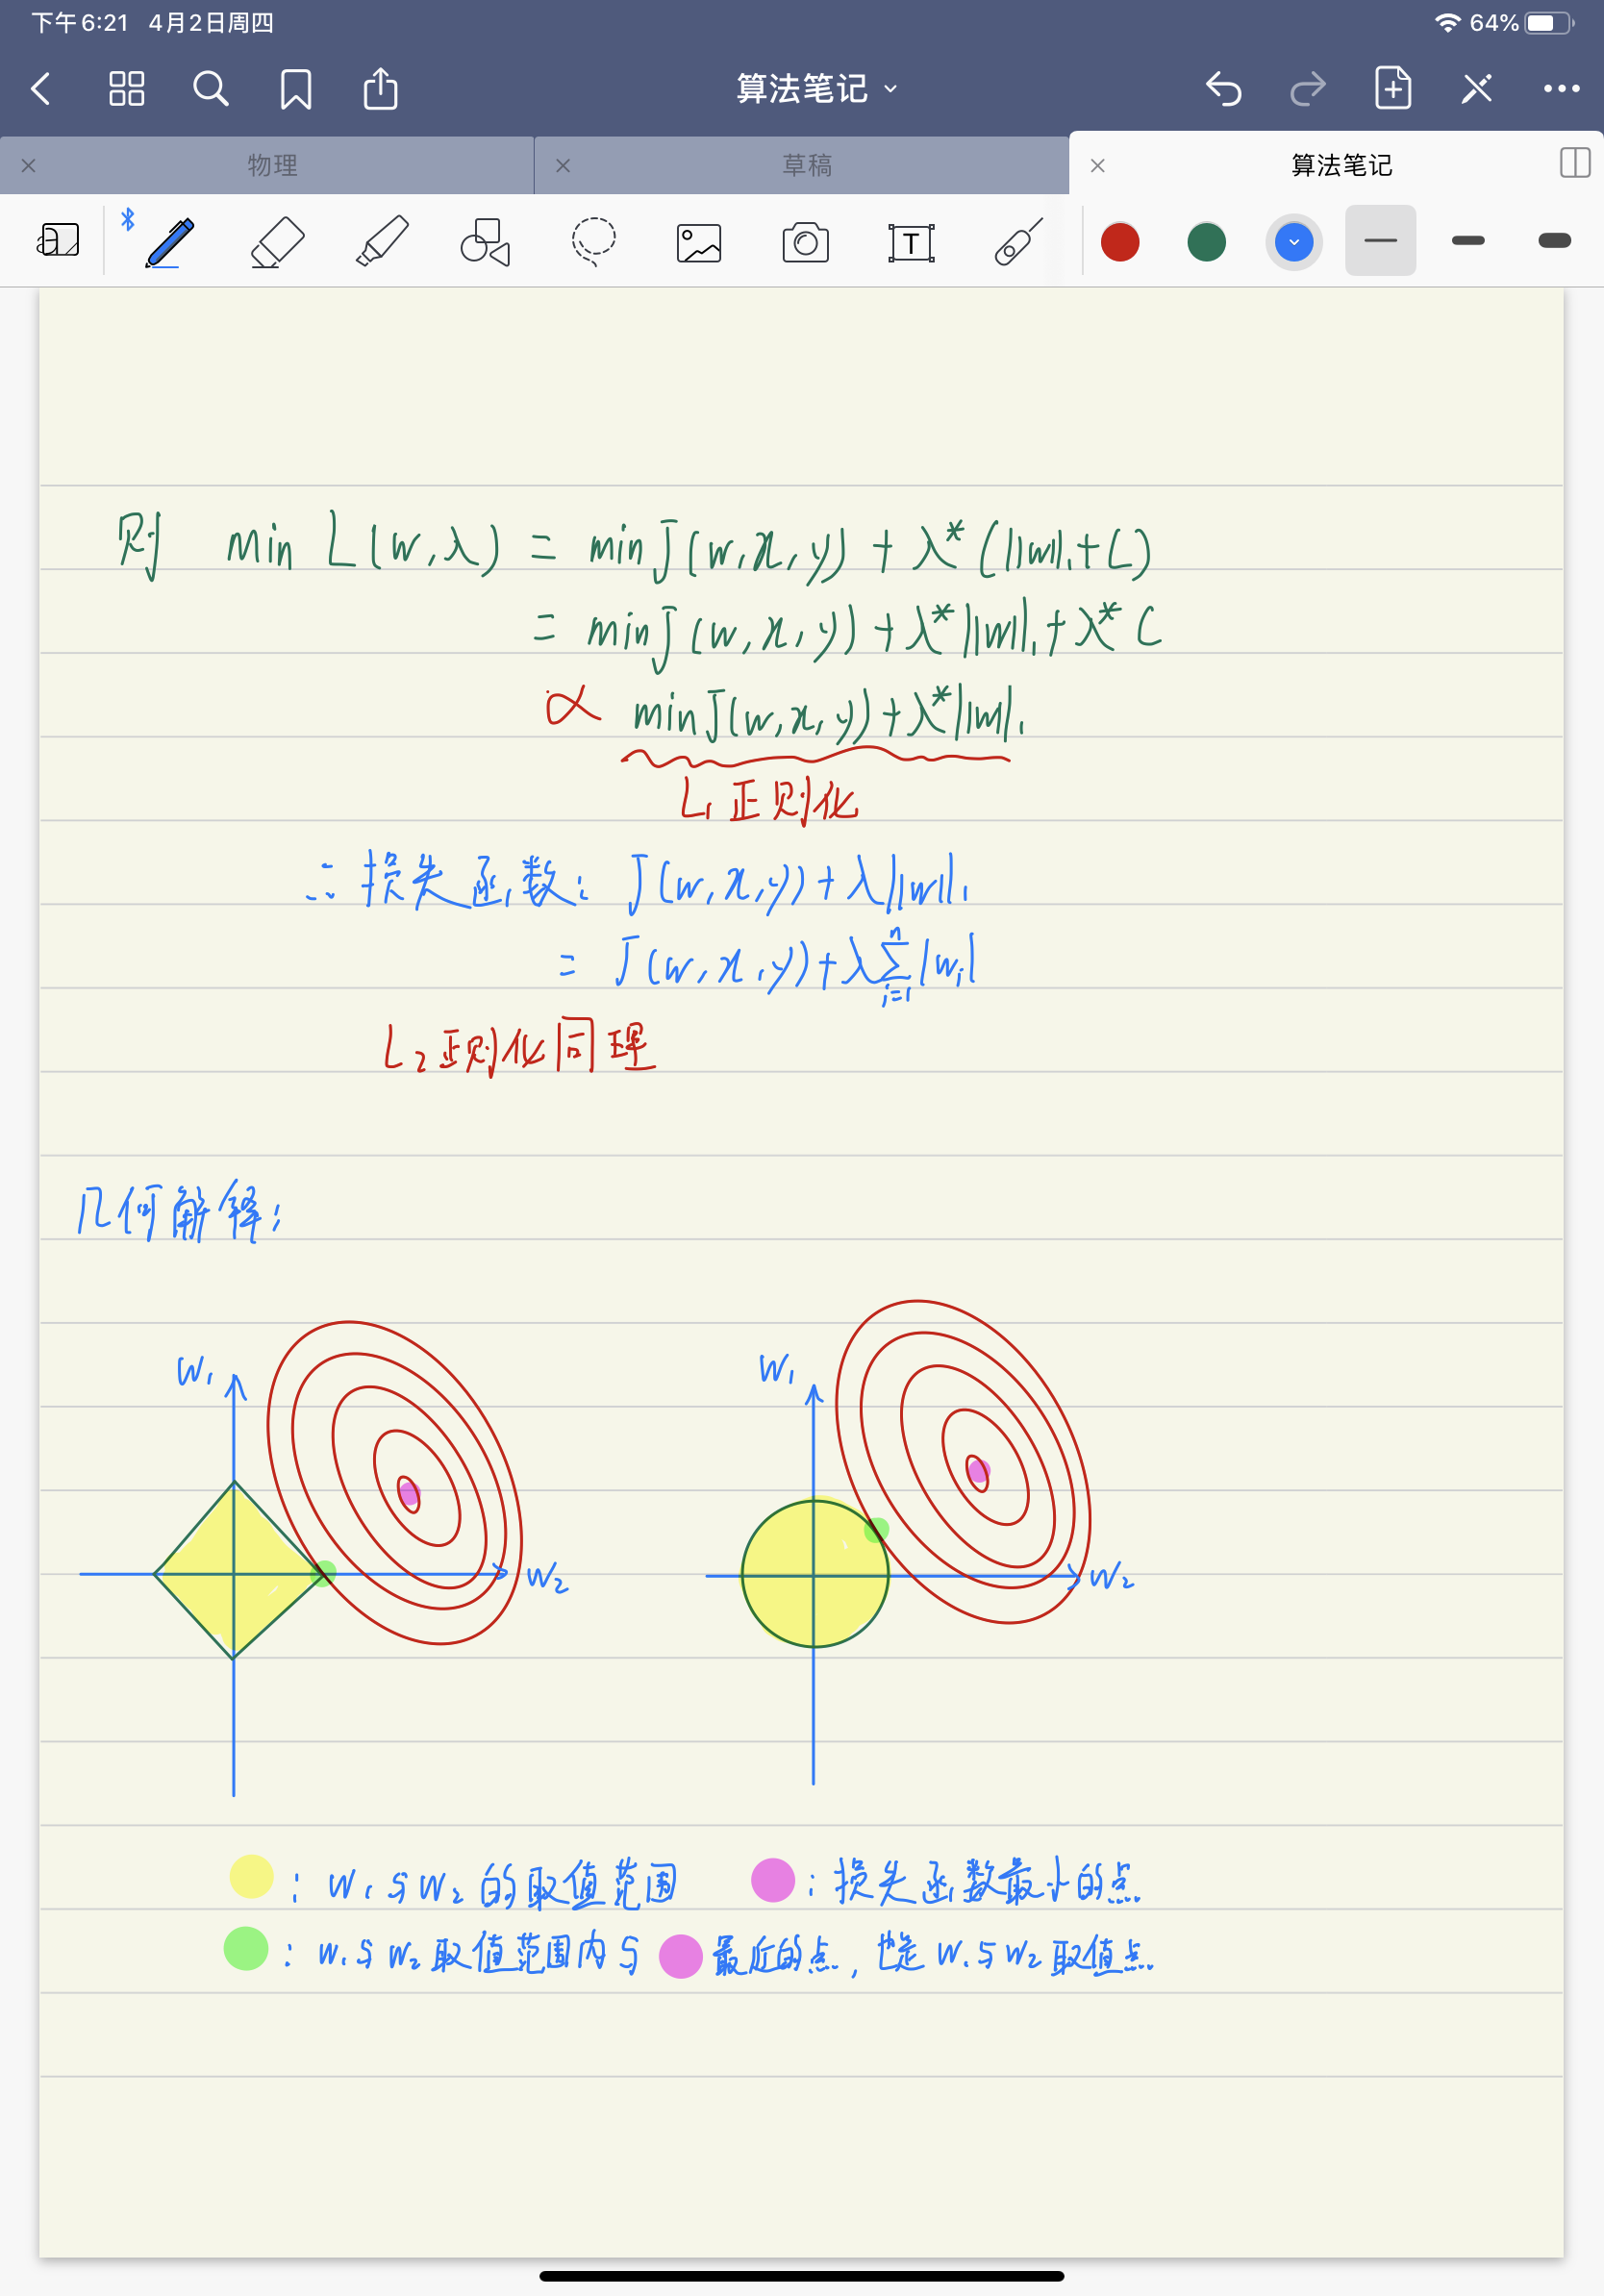 下午6:21 4月2日周四 64%
算法笔记
物理 草稿 算法笔记
T
则 min L(w,λ) = min J(w,x,y) + λ*(||w||₁+C)
= min J(w,x,y) + λ*||w||₁ + λ*C
∝ min J(w,x,y) + λ*||w||₁
L₁正则化
∴ 损失函数: J(w,x,y) + λ||w||₁
= J(w,x,y) + λ∑ⁿᵢ₌₁|wᵢ|
L₂正则化同理
几何解释:
w₁ w₁
w₂ w₂
: w₁与w₂的取值范围 : 损失函数最小的点
: w₁与w₂取值范围内与 最近的点, 也是w₁与w₂取值点